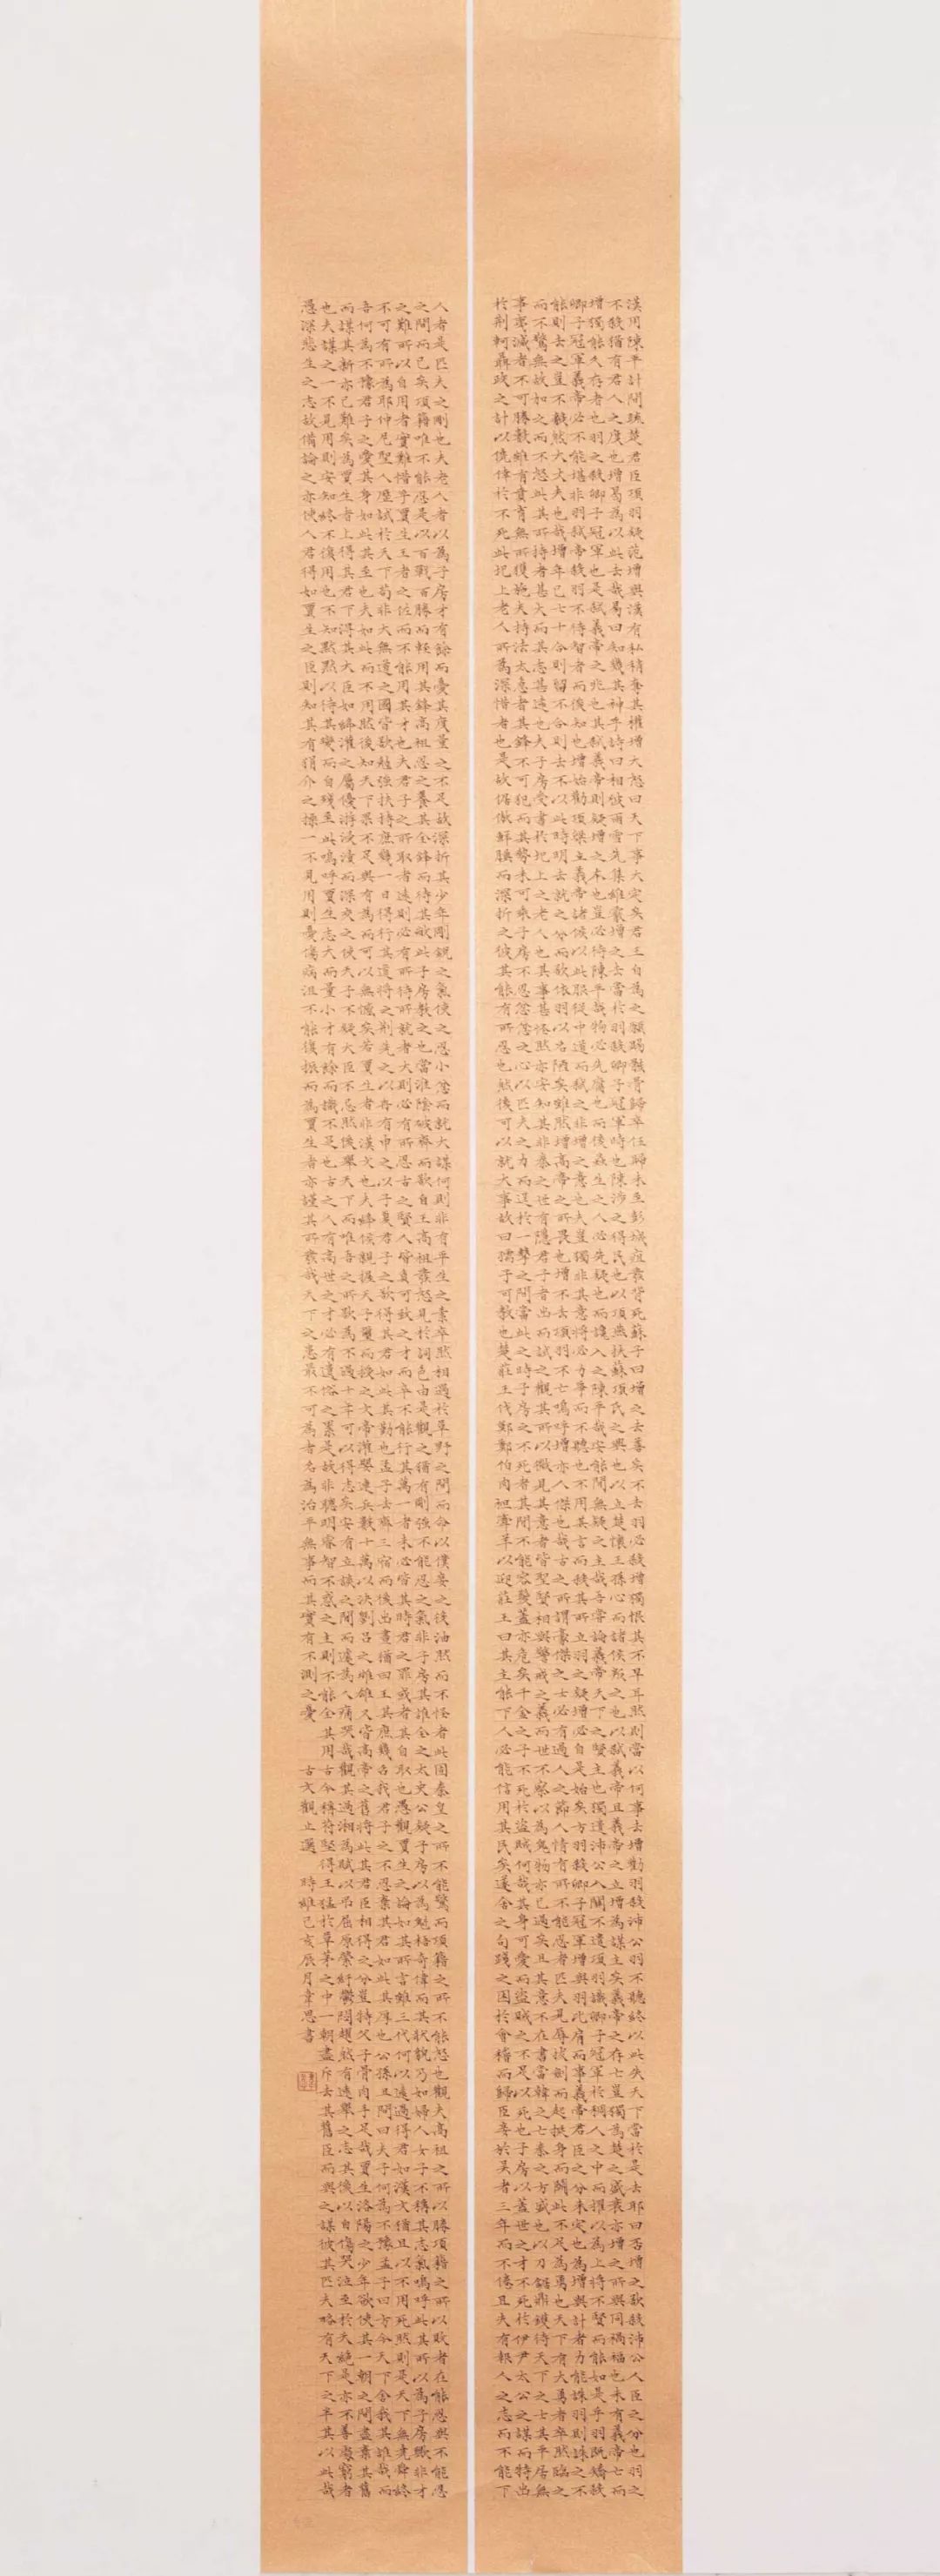 漢用陳平計間疏楚君臣項羽疑范增與漢有私稍奪其權增大怒曰天下事大定矣君王自為之願賜骸骨歸卒伍歸未至彭城疽發背死蘇子曰增之去善矣不去羽必殺增獨恨其不早耳然則當以何事去增勸羽殺沛公羽不聽終以此失天下當於是去耶曰否增之欲殺沛公人臣之分也羽之
不殺猶有君人之度也增曷為以此去哉易曰知幾其神乎詩曰相彼雨雪先集維霰增之去當於羽殺卿子冠軍時也陳涉之得民也以項燕扶蘇項氏之興也以立楚懷王孫心而諸侯叛之也以弒義帝且義帝之立增為謀主矣義帝之存亡豈獨為楚之盛衰亦增之所與同禍福也未有義帝亡而
增獨能久存者也羽之殺卿子冠軍也是弒義帝之兆也其弒義帝則疑增之本也豈必待陳平哉物必先腐也而後蟲生之人必先疑也而讒入之陳平哉安能間無疑之主哉吾嘗論義帝天下之賢主也獨遣沛公入關不遣項羽識卿子冠軍於稠人之中而擢以為上將不賢而能如是乎羽既矯殺
卿子冠軍義帝必不能堪非羽弒帝則帝殺羽不待智者而後知也增始勸項梁立義帝諸侯以此服從中道而弒之非增之意也夫豈獨非其意將必力爭而不聽也不用其言而殺其所立羽之疑增必自是始矣方羽殺卿子冠軍增與羽比肩而事義帝君臣之分未定也為增計者力能誅羽則誅之不
能則去之豈不毅然大丈夫也哉增年已七十合則留不合則去不以此時明去就之分而欲依羽以名陋矣雖然增高帝之所畏也增不去項羽不亡嗚呼增亦人傑也哉古之所謂豪傑之士必有過人之節人情有所不能忍者匹夫見辱拔劍而起挺身而鬭此不足為勇也天下有大勇者卒然臨之
而不驚無故加之而不怒此其所持者甚大而其志甚遠也夫子房受書於圯上之老人也其事甚怪然亦安知其非秦之世有隱君子者出而試之觀其所以微見其意者皆聖賢相與警戒之義而世不察以為鬼物亦已過矣且其意不在書當韓之亡秦之方盛也以刀鋸鼎鑊待天下之士其平居無
事夷滅者不可勝數雖有賁育無所獲施夫持法太急者其鋒不可犯而其勢未可乘子房不忍忿忿之心以匹夫之力而逞於一擊之間當此之時子房之不死者其間不能容髮蓋亦危矣千金之子不死於盜賊何哉其身可愛而盜賊之不足以死也子房以蓋世之才不死於伊尹太公之謀而特出
於荊軻聶政之計以僥倖於不死此圯上老人所為深惜者也是故倨傲鮮腆而深折之彼其能有所忍也然後可以就大事故曰孺子可教也楚莊王伐鄭鄭伯肉袒牽羊以迎莊王曰其主能下人必能信用其民矣遂舍之句踐之困於會稽而歸臣妾於吳者三年而不倦且夫有報人之志而不能下
人者是匹夫之剛也夫老人者以為子房才有餘而憂其度量之不足故深折其少年剛銳之氣使之忍小忿而就大謀何則非有平生之素卒然相遇於草野之間而命以僕妾之役油然而不怪者此固秦皇之所不能驚而項籍之所不能怒也觀夫高祖之所以勝項籍之所以敗者在能忍與不能忍
之間而已矣項籍唯不能忍是以百戰百勝而輕用其鋒高祖忍之養其全鋒而待其敝此子房教之也當淮陰破齊而欲自王高祖發怒見於詞色由是觀之猶有剛強不能忍之氣非子房其誰全之太史公疑子房以為魁梧奇偉而其狀貌乃如婦人女子不稱其志氣嗚呼此其所以為子房歟非才
之難所以自用者實難惜乎賈生王者之佐而不能用其才也夫君子之所取者遠則必有所待所就者大則必有所忍古之賢人皆負可致之才而卒不能行其萬一者未必皆其時君之罪或者其自取也愚觀賈生之論如其所言雖三代何以遠過得君如漢文猶且以不用死然則是天下無堯舜終
不可有所為耶仲尼聖人歷試於天下苟非大無道之國皆欲勉強扶持庶幾一日得行其道將之荊先之以冉有申之以子夏君子之欲得其君如此其勤也孟子去齊三宿而後出晝猶曰王其庶幾召我君子之不忍棄其君如此其厚也公孫丑問曰夫子何為不豫孟子曰方今天下舍我其誰哉而
吾何為不豫君子之愛其身如此其至也夫如此而不用然後知天下果不足與有為而可以無憾矣若賈生者非漢文也夫絳侯親握天子璽而授之文帝灌嬰連兵數十萬以決劉呂之雌雄又皆高帝之舊將此其君臣相得之分豈特父子骨肉手足哉賈生洛陽之少年欲使其一朝之間盡棄其舊
而謀其新亦已難矣為賈生者上得其君下得其大臣如絳灌之屬優游浸漬而深交之使天子不疑大臣不忌然後舉天下而唯吾之所欲為不過十年可以得志矣安有立談之間而遽為人痛哭哉觀其過湘為賦以弔屈原縈紆鬱悶趯然有遠舉之志其後以自傷哭泣至於夭絕是亦不善處窮者
也夫謀之一不見用則安知終不復用也不知默默以待其變而自殘至此嗚呼賈生志大而量小才有餘而識不足也古之人有高世之才必有遺俗之累是故非聰明睿智不惑之主則不能全其用古今稱苻堅得王猛於草茅之中一朝盡斥去其舊臣而與之謀彼其匹夫略有天下之半其以此哉
愚深悲生之志故備論之亦使人君得如賈生之臣則知其有狷介之操一不見用則憂傷病沮不能復振而為賈生者亦謹其所發哉天下之患最不可為者名為治平無事而其實有不測之憂
古文觀止選 時維己亥辰月韋思書